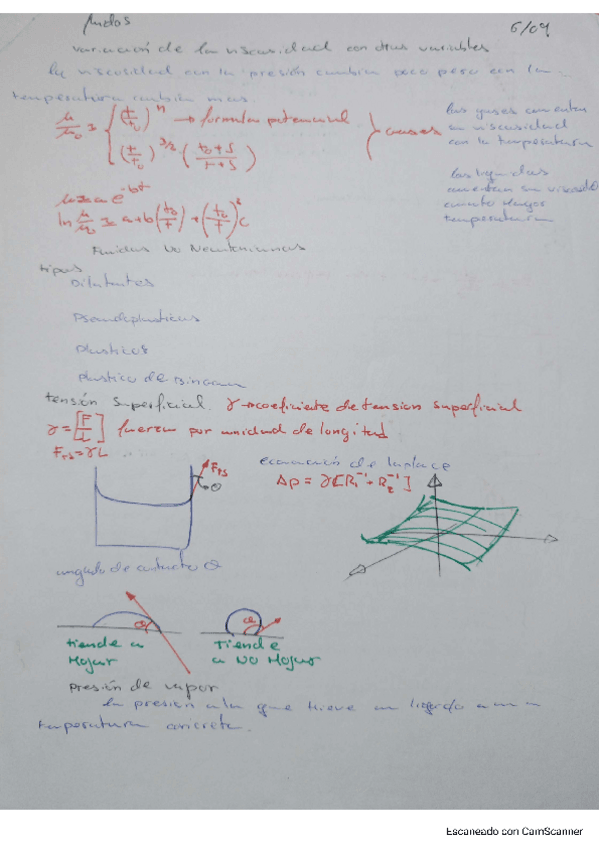 fluidos 6/09
variación de la viscosidad con otras variables
la viscosidad con la presión cambia poco pero con la
temperatura cambia mas.
μ/μ₀ = { (t/t₀)^n → formula potencial
(t/t₀)^3/2 · (t₀+S / t+S) } Gases
los gases aumentan
su viscosidad
con la temperatura
los liquidos
aumentan su viscosidad
cuanto Mayor
temperatura
μ = a e^-bt
ln μ/μ₀ = a+b(t₀/t) + (t₀/t)² c
Fluidos No Newtonianos
tipos
Dilatantes
Pseudoplasticos
plasticos
plastico de Bingham
tensión superficial. γ→coeficiente de tension superficial
γ = [F/L] fuerza por unidad de longitud
F_TS = γL
F_TS
θ
ecuación de Laplace
Δp = γ[R₁⁻¹ + R₂⁻¹]
angulo de contacto θ
θ
θ
tiende a
Mojar
Tiende
a NO Mojar
presión de vapor
la presión a la que hierve un liquido a una
temperatura concreta.
Escaneado con CamScanner